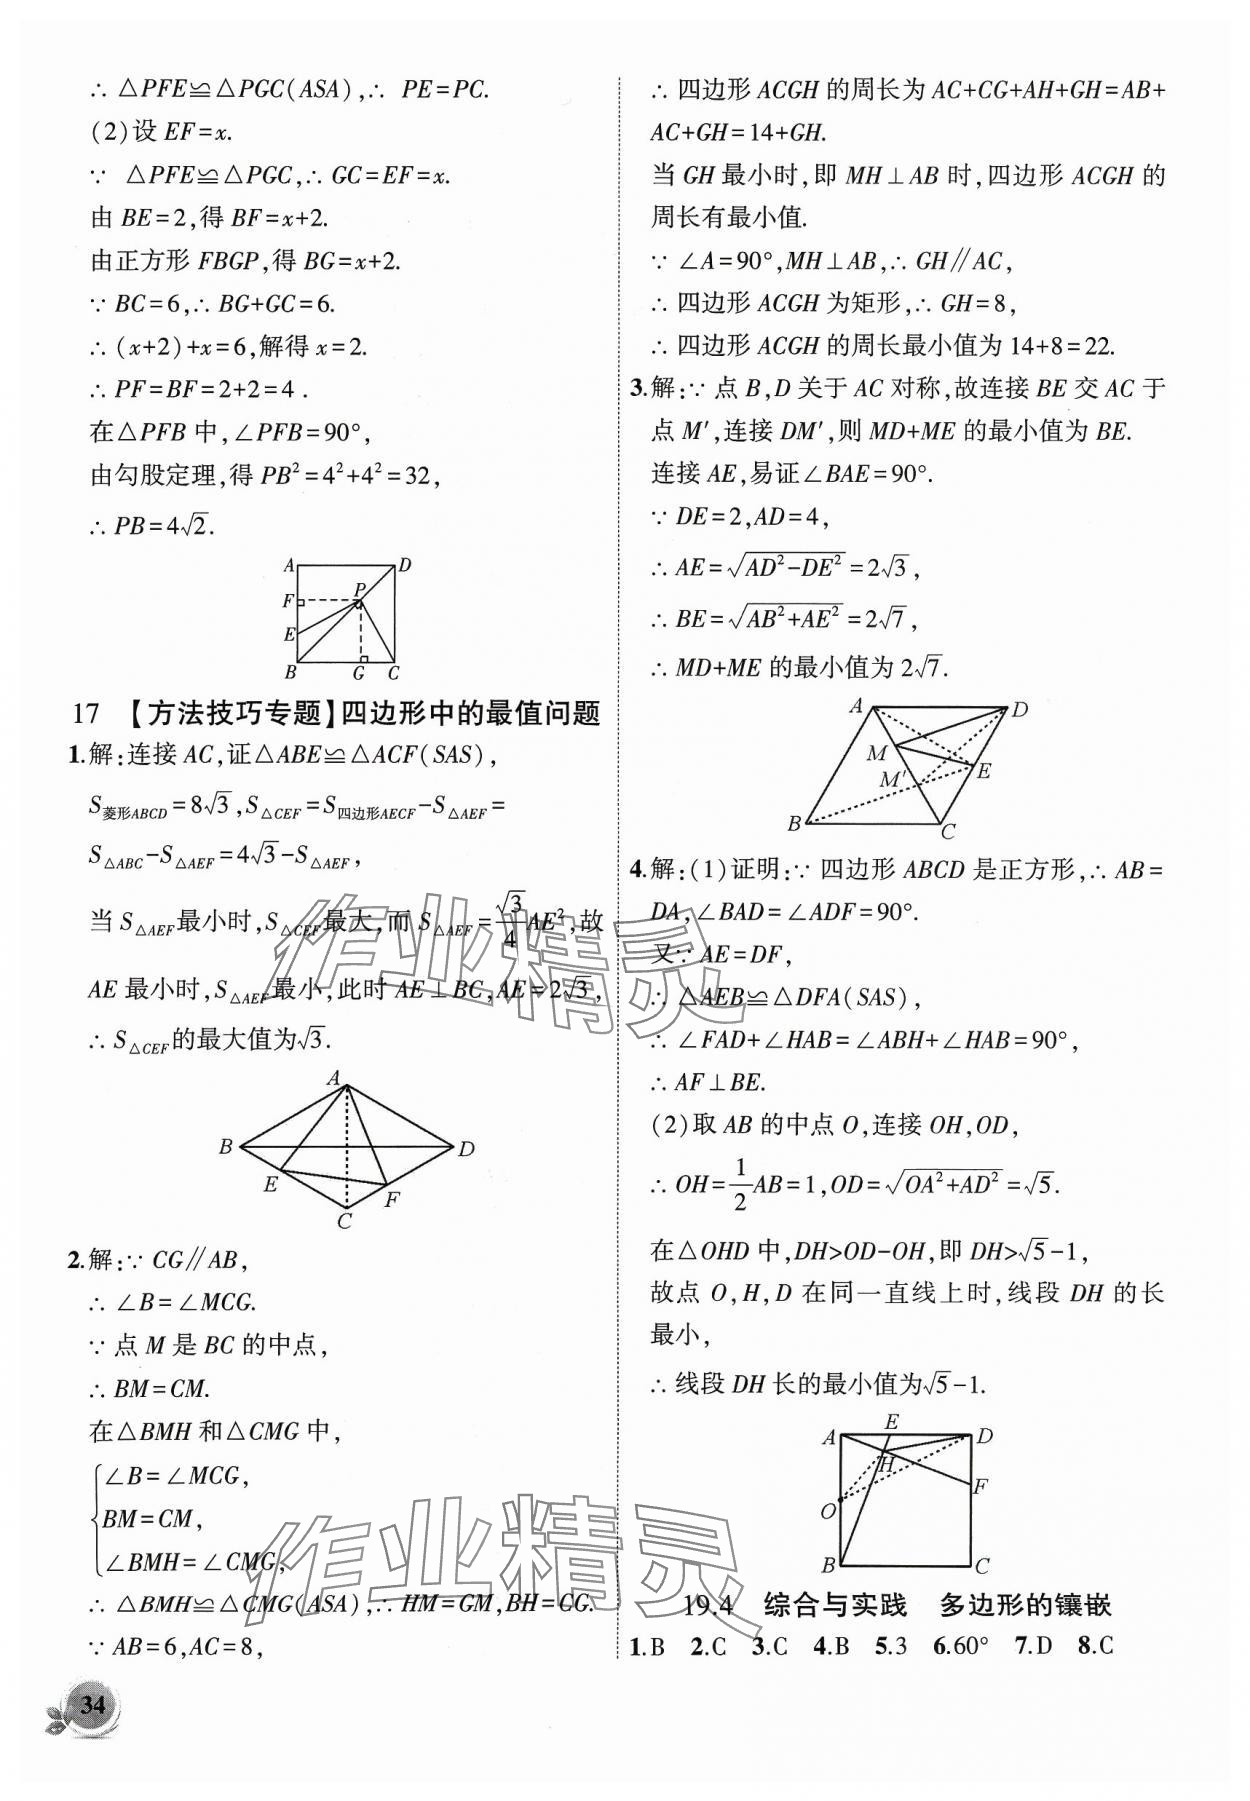 ∴ △PFE≌△PGC(ASA),∴ PE=PC.
(2)设 EF=x.
∵ △PFE≌△PGC,∴ GC=EF=x.
由 BE=2,得 BF=x+2.
由正方形 FBGP,得 BG=x+2.
∵ BC=6,∴ BG+GC=6.
∴ (x+2)+x=6,解得 x=2.
∴ PF=BF=2+2=4 .
在△PFB 中,∠PFB=90°,
由勾股定理,得 PB²=4²+4²=32,
∴ PB=4√2.
A D
F P
E
B G C
17 【方法技巧专题】四边形中的最值问题
1.解:连接 AC,证△ABE≌△ACF(SAS),
S菱形ABCD=8√3,S△CEF=S四边形AECF-S△AEF=
S△ABC-S△AEF=4√3-S△AEF,
当 S△AEF最小时,S△CEF最大,而 S△AEF=√3/4 AE²,故
AE 最小时,S△AEF最小,此时 AE⊥BC,AE=2√3,
∴ S△CEF的最大值为√3.
A
B D
E F
C
2.解:∵ CG∥AB,
∴ ∠B=∠MCG.
∵ 点 M 是 BC 的中点,
∴ BM=CM.
在△BMH 和△CMG 中,
∠B=∠MCG,
BM=CM,
∠BMH=∠CMG,
∴ △BMH≌△CMG(ASA),∴ HM=GM,BH=CG.
∵ AB=6,AC=8,
34
∴ 四边形 ACGH 的周长为 AC+CG+AH+GH=AB+
AC+GH=14+GH.
当 GH 最小时,即 MH⊥AB 时,四边形 ACGH 的
周长有最小值.
∵ ∠A=90°,MH⊥AB,∴ GH∥AC,
∴ 四边形 ACGH 为矩形,∴ GH=8,
∴ 四边形 ACGH 的周长最小值为 14+8=22.
3.解:∵ 点 B,D 关于 AC 对称,故连接 BE 交 AC 于
点 M′,连接 DM′,则 MD+ME 的最小值为 BE.
连接 AE,易证∠BAE=90°.
∵ DE=2,AD=4,
∴ AE=√(AD²-DE²)=2√3,
∴ BE=√(AB²+AE²)=2√7,
∴ MD+ME 的最小值为 2√7.
A D
M E
M′
B C
4.解:(1)证明:∵ 四边形 ABCD 是正方形,∴ AB=
DA,∠BAD=∠ADF=90°.
又∵ AE=DF,
∴ △AEB≌△DFA(SAS),
∴ ∠FAD+∠HAB=∠ABH+∠HAB=90°,
∴ AF⊥BE.
(2)取 AB 的中点 O,连接 OH,OD,
∴ OH=1/2 AB=1,OD=√(OA²+AD²)=√5.
在△OHD 中,DH>OD-OH,即 DH>√5-1,
故点 O,H,D 在同一直线上时,线段 DH 的长
最小,
∴ 线段 DH 长的最小值为√5-1.
A E D
H F
O
B C
19.4 综合与实践 多边形的镶嵌
1.B 2.C 3.C 4.B 5.3 6.60° 7.D 8.C
作业精灵
作业精灵